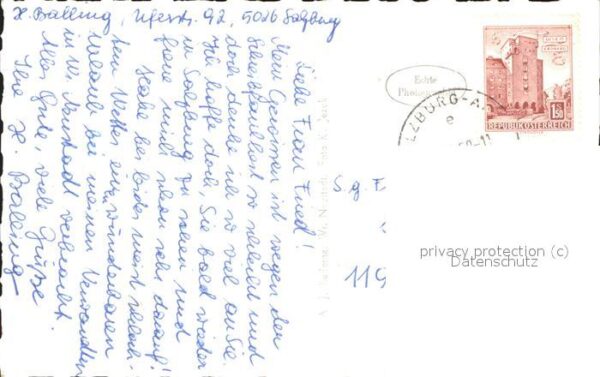 H. Balling, Uferstr. 92, 5026 Salzburg
Liebe Frau Fried!
Mein Gewissen ist wegen der
Schreibfaulheit so schlecht und
doch denke ich so viel an Sie.
Ich hoffe doch, Sie bald wieder
in Salzburg zu sehen und
freue mich schon sehr darauf!
Habe bei leider meist schlech-
tem Wetter einen wunderbaren
Urlaub bei meinen Verwandten
in W. Neustadt verbracht.
Alles Gute, viele Grüße
Ihre H. Balling
Echte
LZBURG-A
e
1.50
REPUBLIK ÖSTERREICH
S. g. F
119
privacy protection (c)
Datenschutz